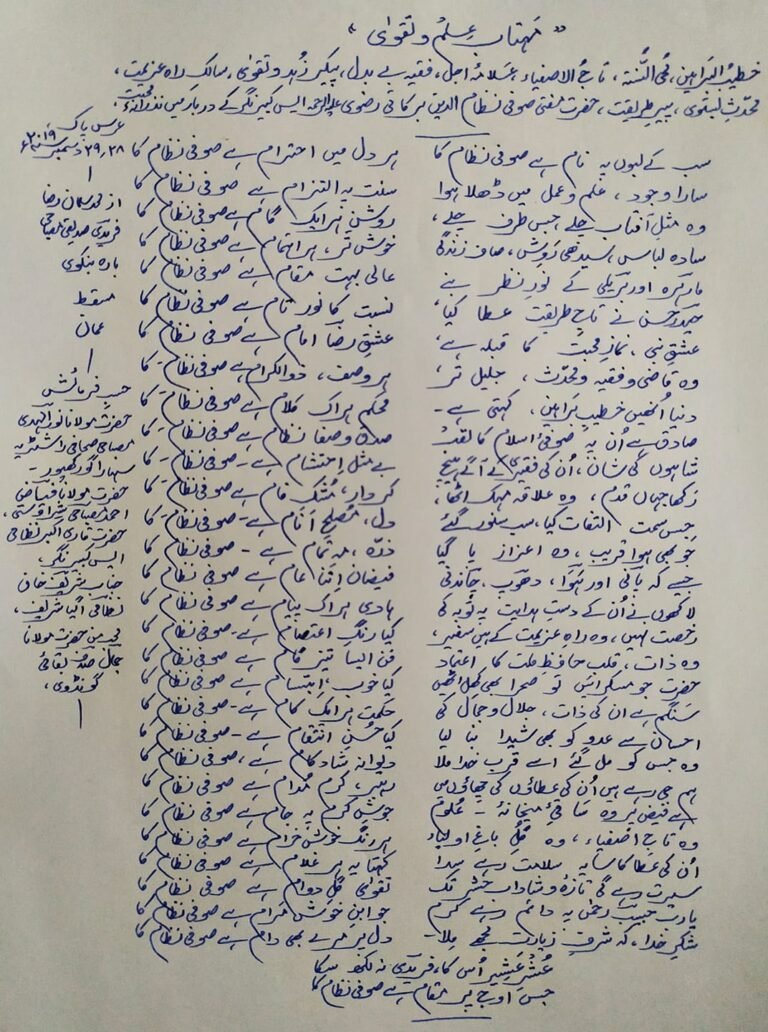 "مہتاب علم و تقوای"
خطیب البراہین، محی السنۃ، تاج الاصفیاء، علامۂ اجل، فقیہ بے بدل، پیکر زہد و تقوی، سالک راہ عزیمت،
محدث بستوی، پیر طریقت، حضرت مفتی صوفی نظام الدین برکاتی رضوی علیہ الرحمہ ایس کبیر نگر کے دربار میں نذرانۂ محبت
سب کے لبوں پہ نام ہے صوفی نظام کا
ہر دل میں احترام ہے صوفی نظام کا
سارا وجود، علم و عمل میں ڈھلا ہوا
سنت پہ التزام ہے صوفی نظام کا
وہ مثل آفتاب چلے جس طرف چلے،
روشن ہر ایک گام ہے صوفی نظام کا
سادہ لباس، سیدھی روش، صاف زندگی
خوش تر، ہر اہتمام ہے صوفی نظام کا
مارہرہ اور بریلی کے نور نظر بنے
عالی بہت مقام ہے صوفی نظام کا
حیدر حسن نے تاج طریقت عطا کیا،
نسبت کا نور تام ہے صوفی نظام کا
عشق نبی، نماز محبت کا قبلہ ہے،
عشق رضا امام ہے صوفی نظام کا
وہ قاضی و فقیہ و محدث، جلیل تر،
ہر وصف، ذوالکرام ہے صوفی نظام کا
دنیا انھیں خطیب براہین، کہتی ہے۔
محکم ہر اک کلام ہے صوفی نظام کا
صادق ہے ان پہ صوفئ اسلام کا لقب
صدق و صفا نظام ہے صوفی نظام کا
شاہوں کی شان، ان کی فقیری کے آگے ہیچ
بے مثل احتشام ہے۔ صوفی نظام کا
رکھا جہاں قدم، وہ علاقہ مہک اٹھا،
کردار، مشک فام ہے صوفی نظام کا
جس سمت التفات کیا، سب سنور گئے
دل، مصلح انام ہے۔ صوفی نظام کا
جو بھی ہوا قریب، وہ اعزاز پا گیا
ذرہ، مہ تمام ہے۔ صوفی نظام کا
جیسے کہ پانی اور ہوا، دھوپ، چاندنی
فیضان اتنا عام ہے صوفی نظام کا
لاکھوں نے ان کے دست ہدایت پہ توبہ کی
ہادی ہر اک پیام ہے صوفی نظام کا
رخصت نہیں، وہ راہ عزیمت کے ہیں سفیر،
کیا رنگ اعتصام ہے۔ صوفی نظام کا
وہ ذات، قلب حافظ ملت کا اعتماد
فن ایسا تیز گام ہے صوفی نظام کا
حضرت جو مسکرائیں تو صحرا بھی کھل اٹھیں
کیا خوب، ابتسام ہے صوفی نظام کا
سنگم ہے ان کی ذات، جلال و جمال کی
حکمت ہر ایک کام ہے۔ صوفی نظام کا
احسان سے عدو کو بھی شیدا بنا لیا
کیا حسن انتقام ہے۔ صوفی نظام کا
وہ جس کو مل گئے اسے قرب خدا ملا
دیوانہ شاد کام ہے، صوفی نظام کا
ہم جی رہے ہیں ان کی عطاؤں کی چھاؤں میں
رہبر، کرم مدام ہے صوفی نظام کا
ہے فیض پر وہ ساقئ میخانۂ علوم
جوش کرم پہ جام ہے صوفی نظام کا
وہ تاج اصفیاء، وہ گل باغ اولیاء
ہر رنگ خوش خرام ہے صوفی نظام کا
ان کی عطا کا سایہ سلامت رہے سدا
کہتا یہ ہر غلام ہے صوفی نظام کا
سیرت رہے گی تازہ و شاداب حشر تک
تقوی گل دوام ہے صوفی نظام کا
یارب حبیب رحمن پہ دائم رہے کرم
جو ابن خوش مرام ہے صوفی نظام کا
شکر خدا، کہ شرف زیارت مجھے ملا۔
دل پر مرے بھی دام ہے صوفی نظام کا
عشر عشیر اس کا، فریدی نہ لکھ سکا
جس اوج پر مقام ہے صوفی نظام کا
عرس پاک
۲۸، ۲۹ دسمبر ۲۰۱۹ء
از محمد سلمان رضا
فریدی صدیقی مصباحی
بارہ بنکوی
مسقط
عمان
حسب فرمائش
حضرت مولانا نور الہدی
مصباحی صحافی راشٹریہ
سہارا گورکھپور۔
حضرت مولانا فیاضی
احمد مصباحی شراوستی،
حضرت قاری اکبر نظامی
ایس کبیر نگر،
جناب شریف خان
نظامی اگیا شریف،
محبی حضرت مولانا
جمال صدف بقائی
گونڈوی،